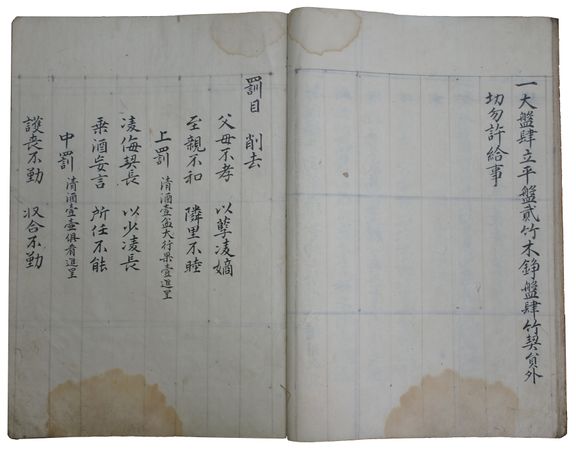 一大盤肆立平盤貳竹木錚盤肆竹契員外
切勿許給事
罰目 削去
父母不孝 以孽凌嫡
至親不和 隣里不睦
上罰 清酒壹盆大行果壹進呈
凌侮契長 以少凌長
乘酒妄言 所任不能
中罰 清酒壹壺俱肴進呈
護喪不勤 収合不勤